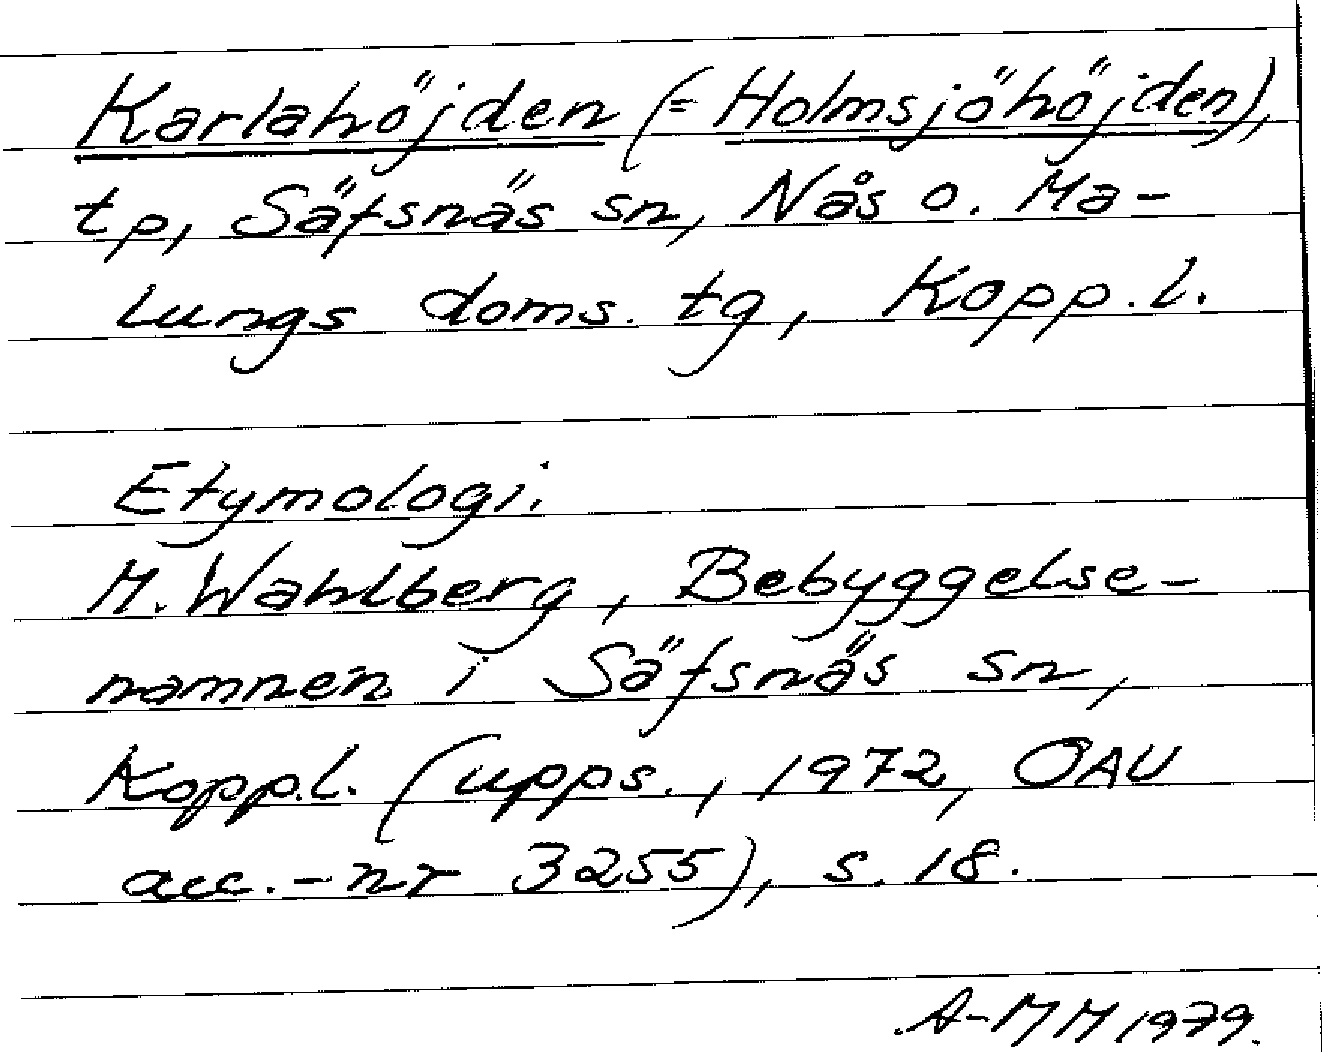 Karlahöjden (= Holmsjöhöjden),
tp, Säfsnäs sn, Nås o. Ma-
lungs doms. tg, Kopp. l.
Etymologi.
M. Wahlberg, Bebyggelse-
namnen i Säfsnäs sn,
Kopp.l. (upps., 1972, OAU
acc.-nr 3255), s. 18.
A-MM 1979.